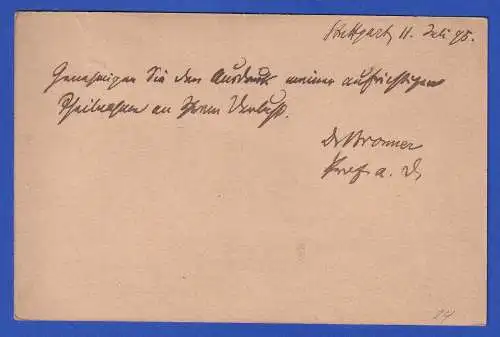 Stuttgart, 11. Juli 95.
Genehmigen Sie den Ausdruck meiner aufrichtigen
Theilnahme an Ihrem Verlust.
Dr Bronner
Prof. a. D.